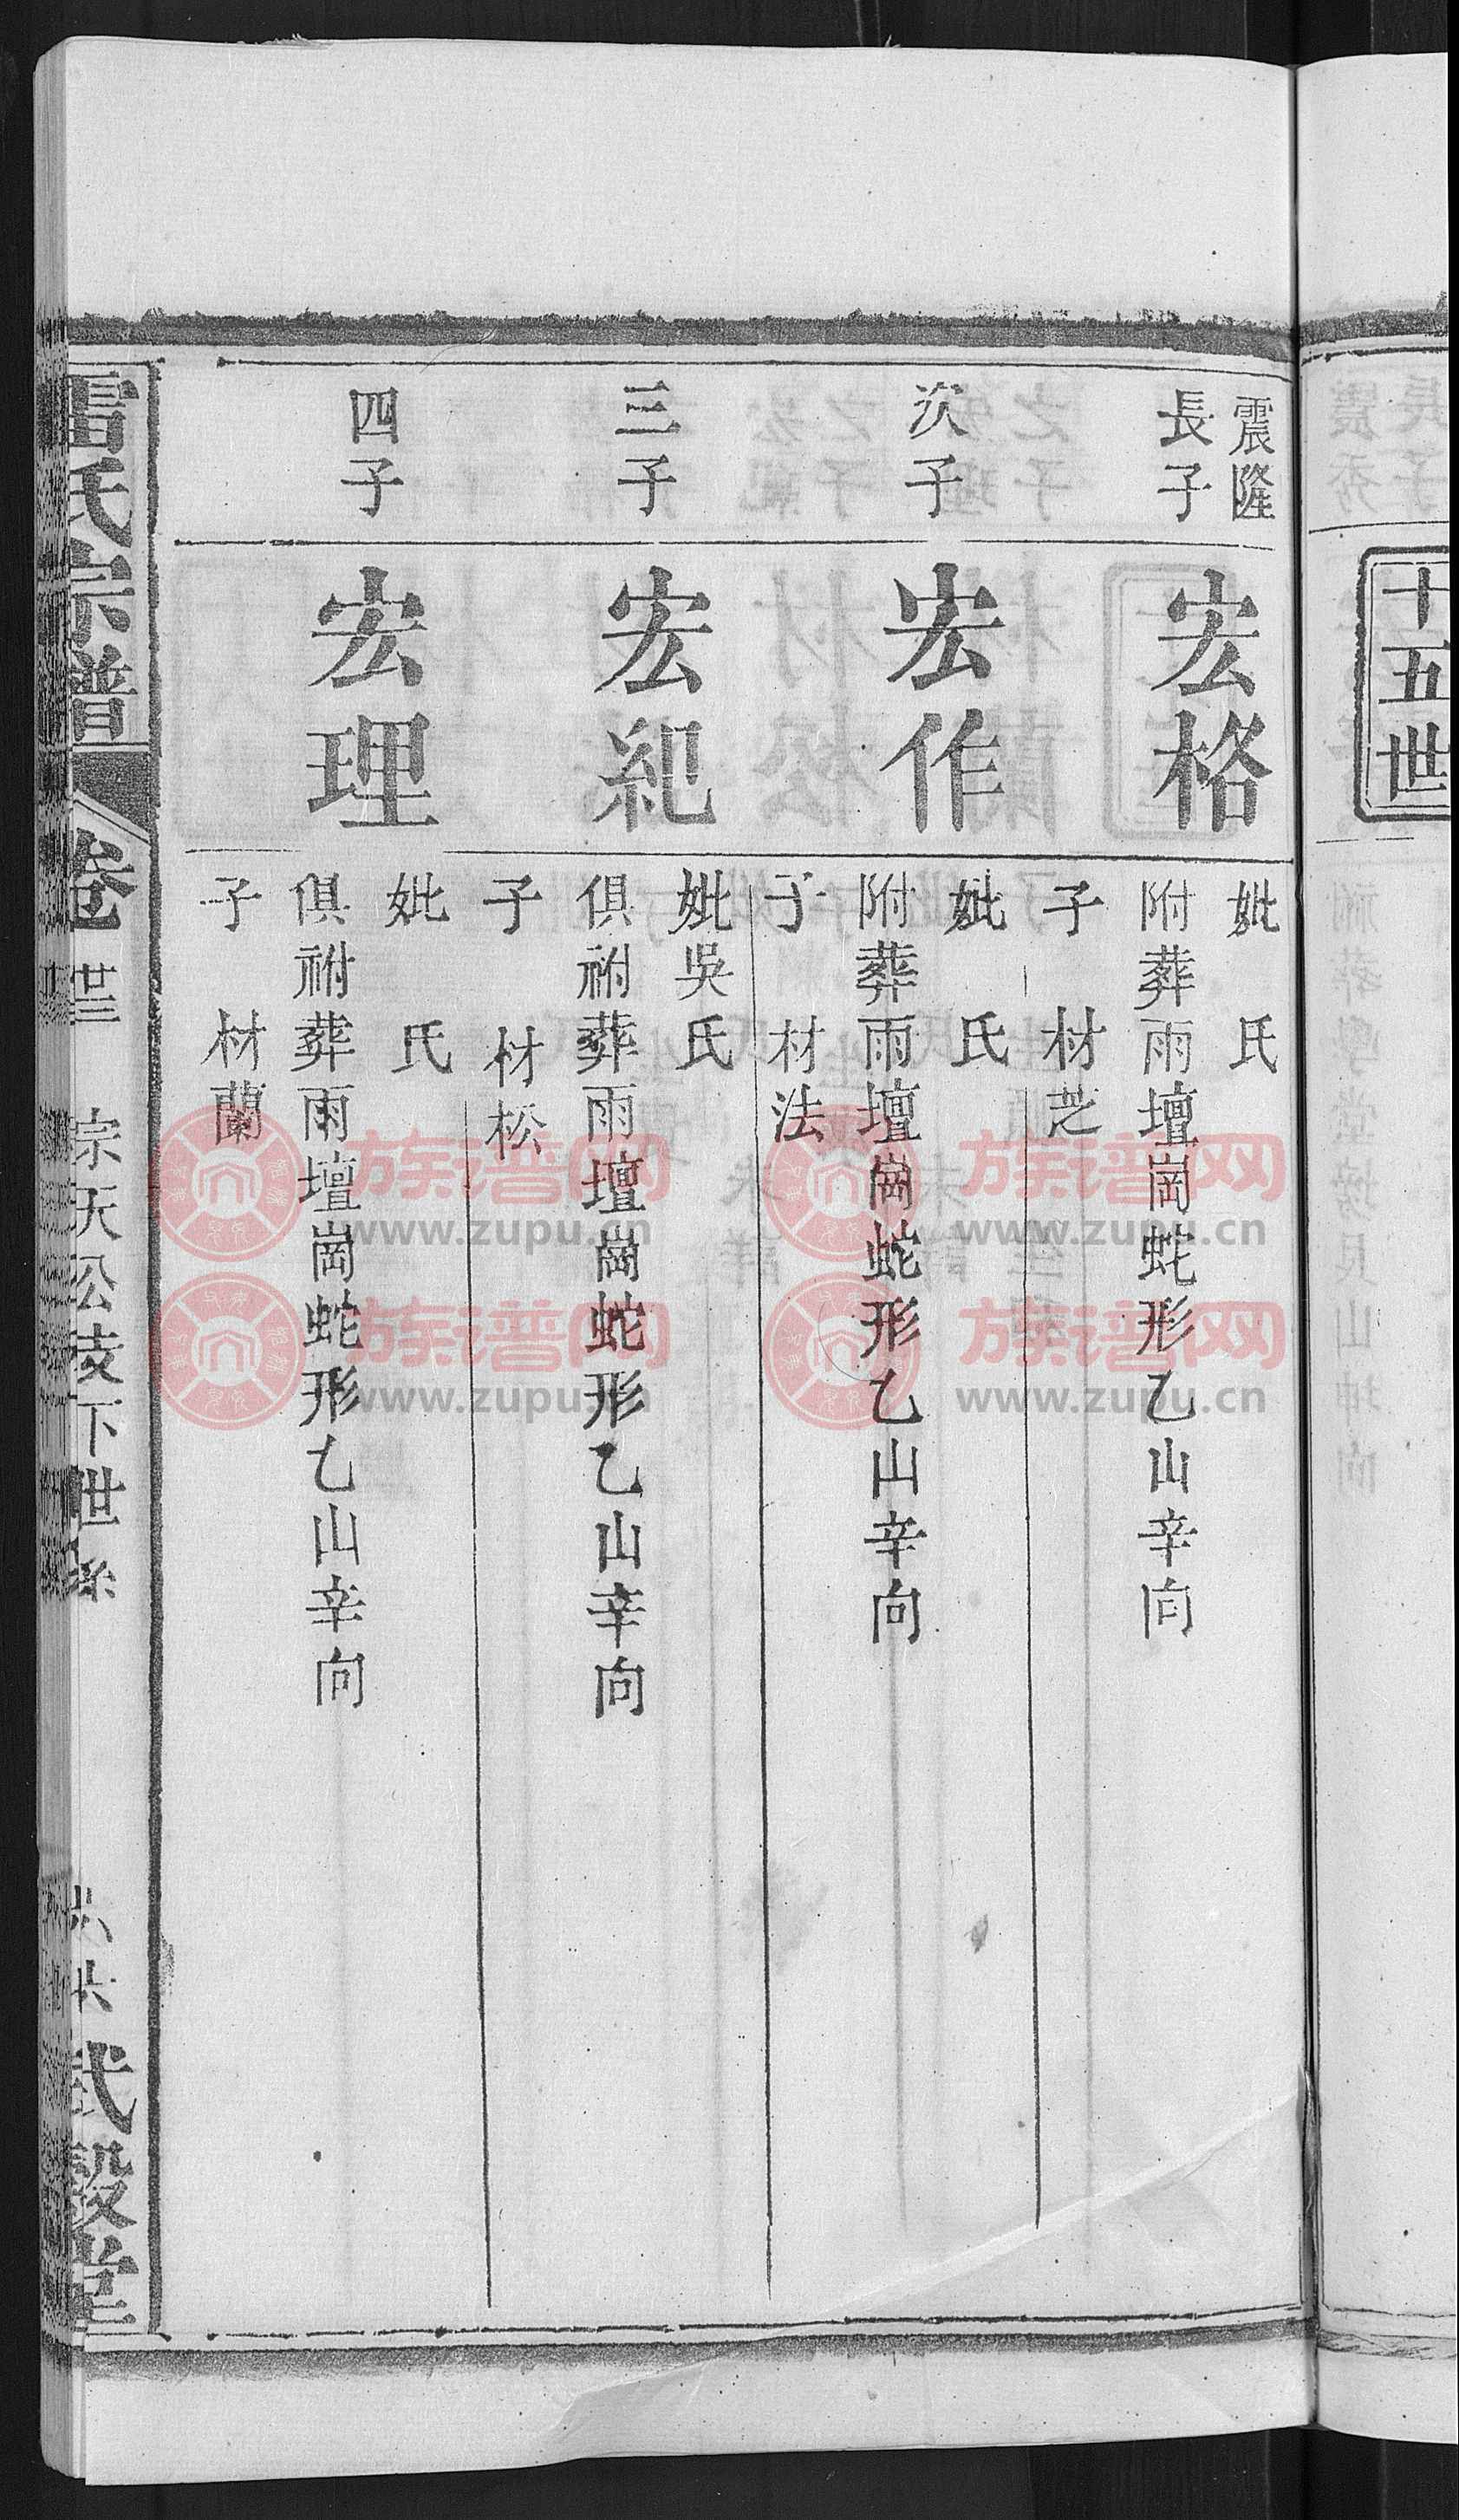 十五世
震隆
長子
宏格
妣　氏
附葬雨壇崗蛇形乙山辛向
子　材芝
次子
宏作
妣　氏
附葬雨壇崗蛇形乙山辛向
子　材法
三子
宏紀
妣吳氏
俱祔葬雨壇崗蛇形乙山辛向
子　材松
四子
宏理
妣　氏
俱祔葬雨壇崗蛇形乙山辛向
子　材蘭
雷氏宗譜
卷廿三
宗天公支下世系
武毅堂
族谱网
www.zupu.cn
族谱网
www.zupu.cn
族谱网
www.zupu.cn
族谱网
www.zupu.cn